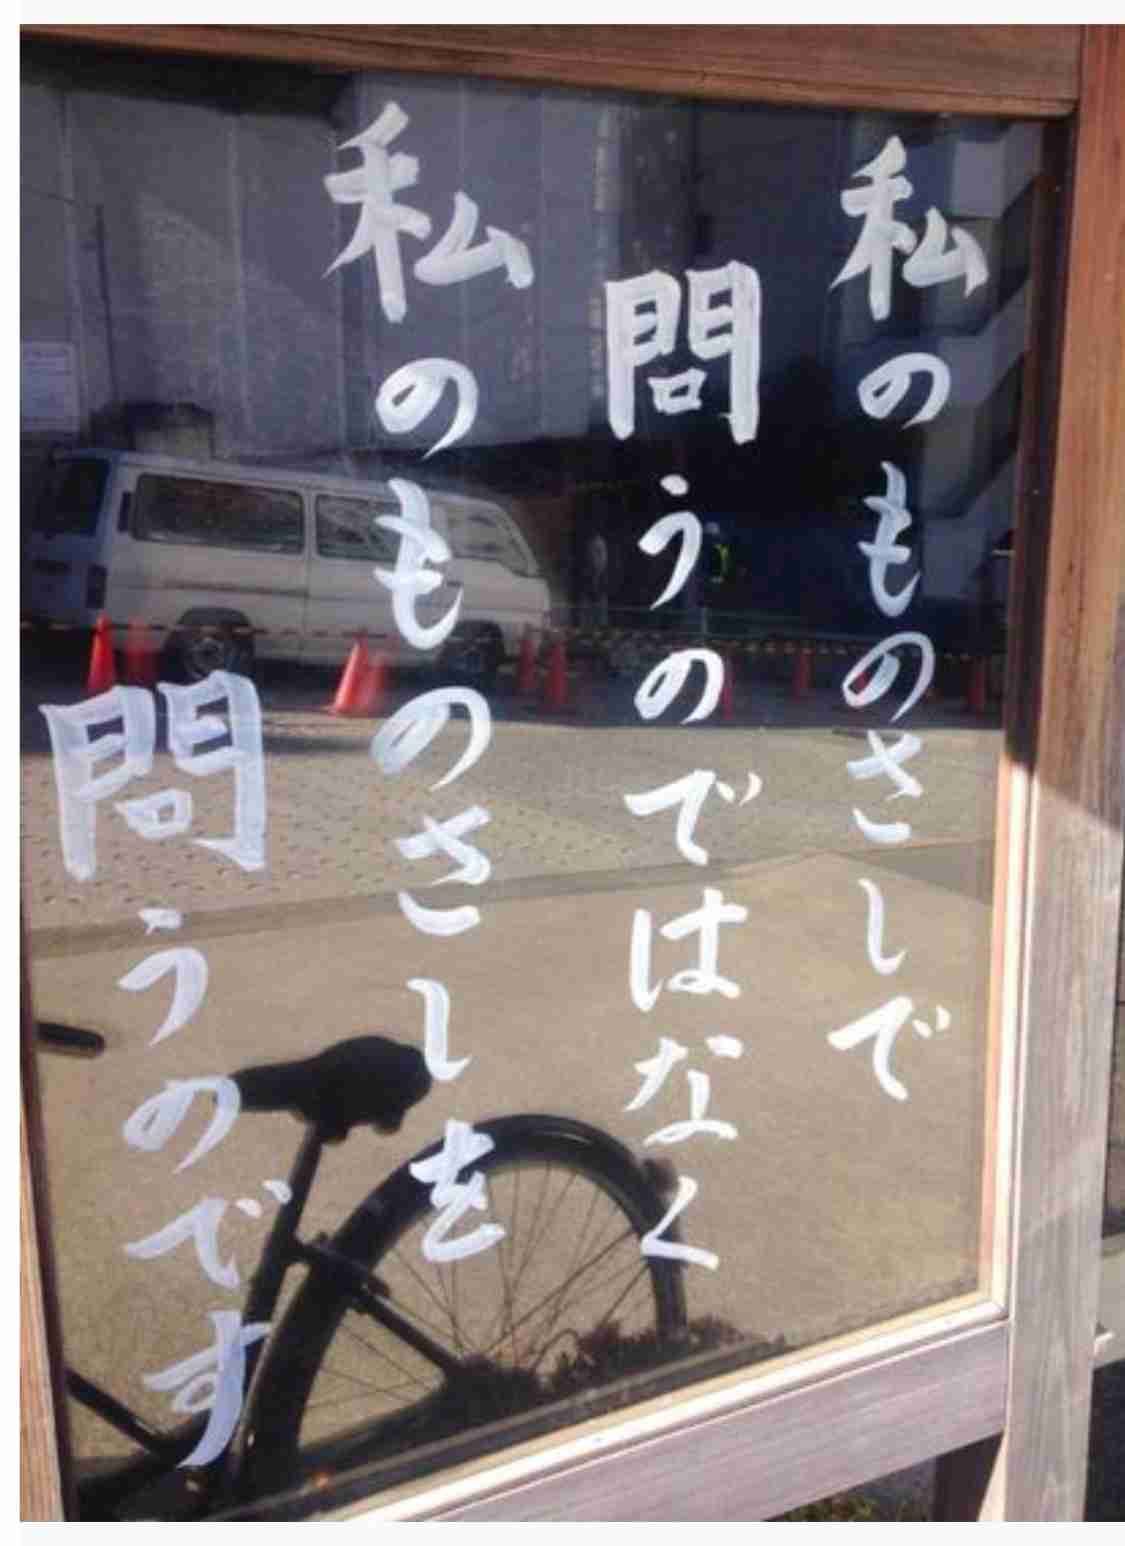 私のものさしで
問うのではなく
私のものさしを
問うのです